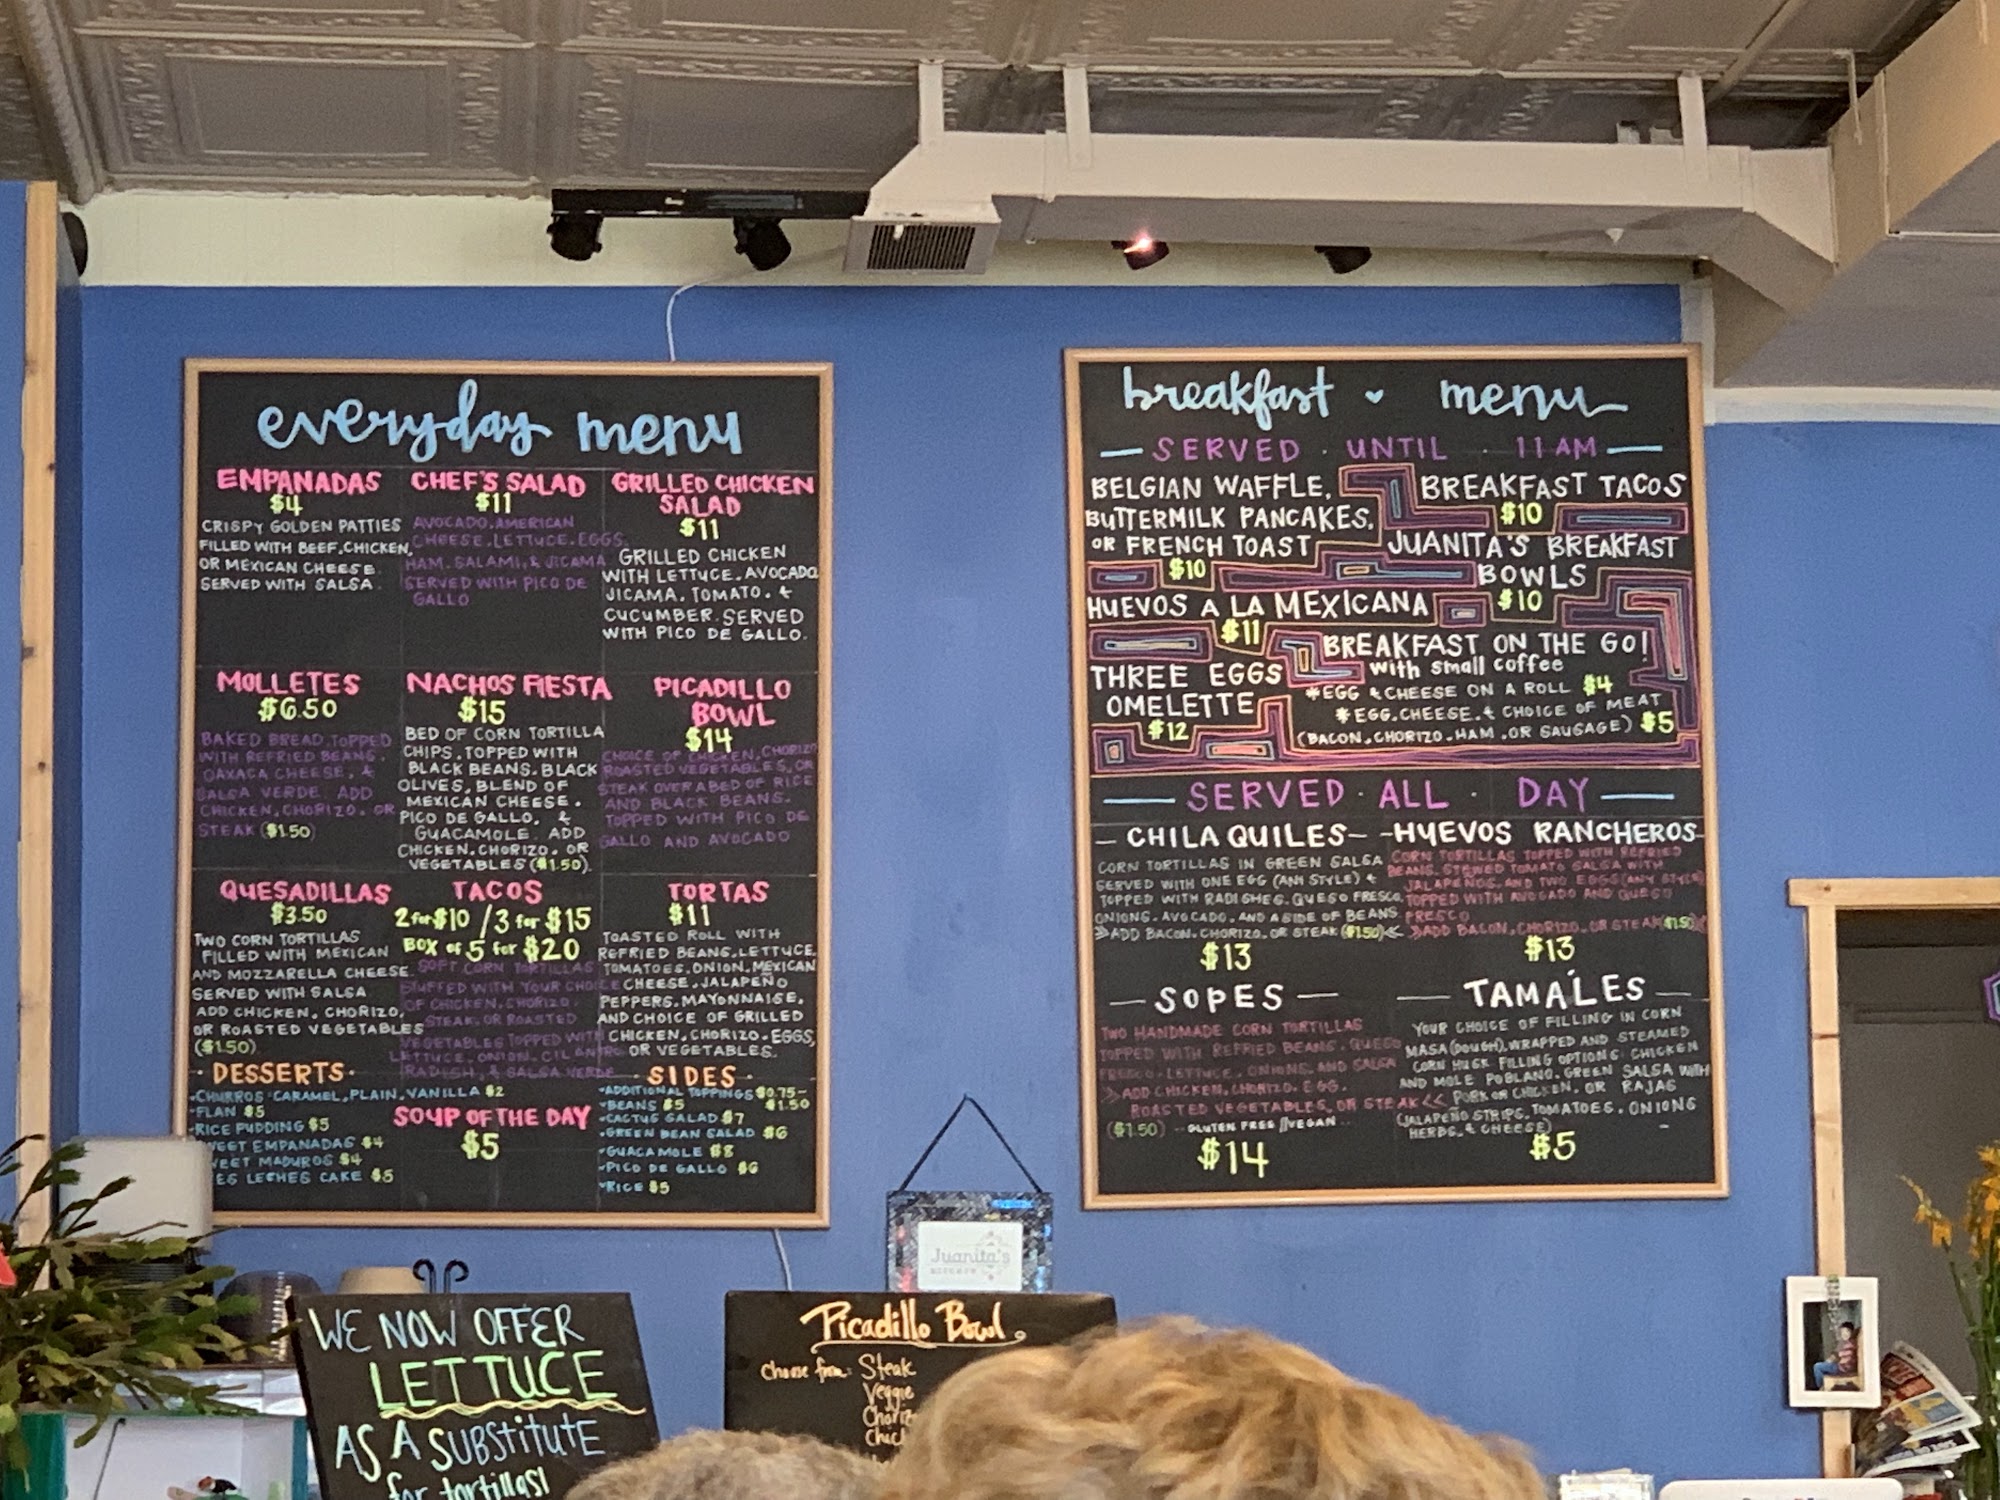 everyday menu
EMPANADAS
$4
CRISPY GOLDEN PATTIES
FILLED WITH BEEF, CHICKEN,
OR MEXICAN CHEESE.
SERVED WITH SALSA.
CHEF'S SALAD
$11
AVOCADO, AMERICAN
CHEESE, LETTUCE, EGGS,
HAM, SALAMI, & JICAMA
SERVED WITH PICO DE
GALLO
GRILLED CHICKEN
SALAD
$11
GRILLED CHICKEN
WITH LETTUCE, AVOCADO
JICAMA, TOMATO, &
CUCUMBER. SERVED
WITH PICO DE GALLO.
MOLLETES
$6.50
BAKED BREAD TOPPED
WITH REFRIED BEANS,
OAXACA CHEESE, &
SALSA VERDE. ADD
CHICKEN, CHORIZO, OR
STEAK ($1.50)
NACHOS FIESTA
$15
BED OF CORN TORTILLA
CHIPS, TOPPED WITH
BLACK BEANS, BLACK
OLIVES, BLEND OF
MEXICAN CHEESE,
PICO DE GALLO, &
GUACAMOLE. ADD
CHICKEN, CHORIZO, OR
VEGETABLES ($1.50).
PICADILLO
BOWL
$14
CHOICE OF CHICKEN, CHORIZO
ROASTED VEGETABLES, OR
STEAK OVER A BED OF RICE
AND BLACK BEANS.
TOPPED WITH PICO DE
GALLO AND AVOCADO
QUESADILLAS
$3.50
TWO CORN TORTILLAS
FILLED WITH MEXICAN
AND MOZZARELLA CHEESE.
SERVED WITH SALSA
ADD CHICKEN, CHORIZO,
OR ROASTED VEGETABLES
($1.50)
TACOS
2 for $10 / 3 for $15
BOX of 5 for $20
SOFT CORN TORTILLAS
STUFFED WITH YOUR CHOICE
OF CHICKEN, CHORIZO,
STEAK, OR ROASTED
VEGETABLES TOPPED WITH
LETTUCE, ONION, CILANTRO
RADISH, & SALSA VERDE
TORTAS
$11
TOASTED ROLL WITH
REFRIED BEANS, LETTUCE,
TOMATOES, ONION, MEXICAN
CHEESE, JALAPEÑO
PEPPERS, MAYONNAISE,
AND CHOICE OF GRILLED
CHICKEN, CHORIZO, EGGS,
OR VEGETABLES.
DESSERTS
CHURROS-CARAMEL, PLAIN, VANILLA $2
FLAN $5
RICE PUDDING $5
WEET EMPANADAS $4
WEET MADUROS $4
ES LECHES CAKE $5
SOUP OF THE DAY
$5
SIDES
ADDITIONAL TOPPINGS $0.75-
$1.50
BEANS $5
CACTUS SALAD $7
GREEN BEAN SALAD $6
GUACAMOLE $8
PICO DE GALLO $6
RICE $5
breakfast menu
SERVED · UNTIL · 11AM
BELGIAN WAFFLE,
BUTTERMILK PANCAKES,
OR FRENCH TOAST
$10
HUEVOS A LA MEXICANA
$11
THREE EGGS
OMELETTE
$12
BREAKFAST TACOS
$10
JUANITA'S BREAKFAST
BOWLS
$10
BREAKFAST ON THE GO!
with small coffee
*EGG & CHEESE ON A ROLL $4
*EGG, CHEESE, & CHOICE OF MEAT
(BACON, CHORIZO, HAM, OR SAUSAGE) $5
SERVED · ALL · DAY
CHILAQUILES
CORN TORTILLAS IN GREEN SALSA
SERVED WITH ONE EGG (ANY STYLE) &
TOPPED WITH RADISHES, QUESO FRESCO,
ONIONS, AVOCADO, AND A SIDE OF BEANS
>>ADD BACON, CHORIZO, OR STEAK ($1.50)<<
$13
HUEVOS RANCHEROS
CORN TORTILLAS TOPPED WITH REFRIED
BEANS, STEWED TOMATO SALSA WITH
JALAPEÑOS, AND TWO EGGS (ANY STYLE)
TOPPED WITH AVOCADO AND QUESO
FRESCO
>>ADD BACON, CHORIZO, OR STEAK ($1.50)
$13
SOPES
TWO HANDMADE CORN TORTILLAS
TOPPED WITH REFRIED BEANS, QUESO
FRESCO, LETTUCE, ONIONS, AND SALSA
>>ADD CHICKEN, CHORIZO, EGG,
ROASTED VEGETABLES, OR STEAK<<
($1.50) --GLUTEN FREE//VEGAN--
$14
TAMALES
YOUR CHOICE OF FILLING IN CORN
MASA (DOUGH), WRAPPED AND STEAMED
CORN HUSK FILLING OPTIONS: CHICKEN
AND MOLE POBLANO, GREEN SALSA WITH
PORK OR CHICKEN, OR RAJAS
(JALAPEÑO STRIPS, TOMATOES, ONIONS
HERBS, & CHEESE)
$5
Juanita's
WE NOW OFFER
LETTUCE
AS A SUBSTITUTE
for tortillas!
Picadillo Bowl
Choose from: Steak
Veggie